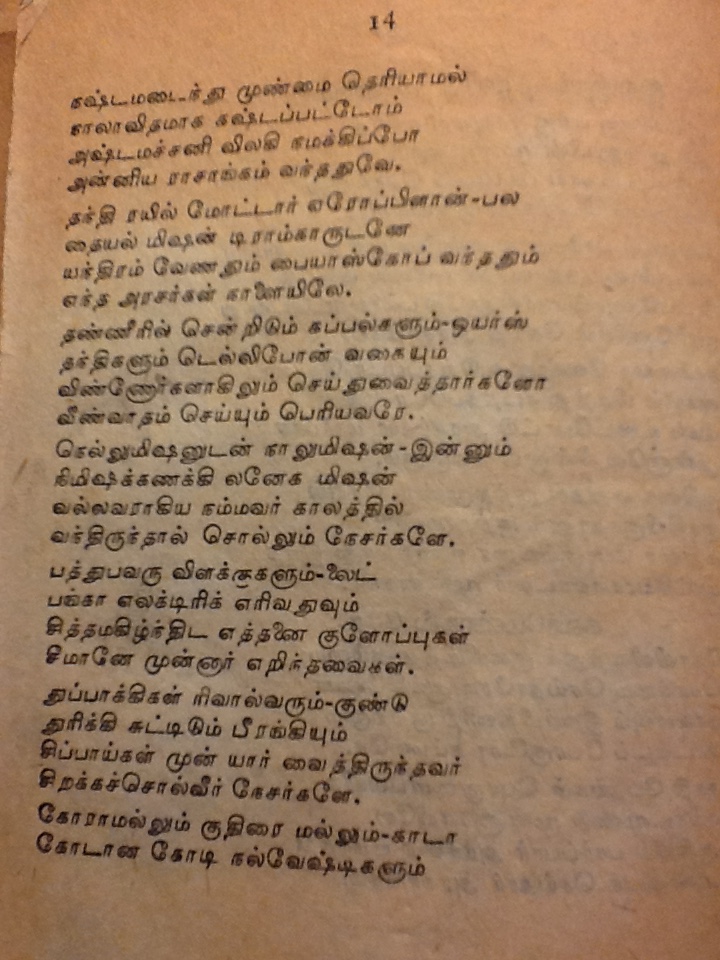 14
கஷ்டமடைந்து முண்மை தெரியாமல்
நாலாவிதமாக கஷ்டப்பட்டோம்
அஷ்டமச்சனி விலகி நமக்கிப்போ
அன்னிய ராசாங்கம் வந்ததுவே.
தந்தி ரயில் மோட்டார் ஏரோப்பிளான்-பல
தையல் மிஷன் டிராம்காருடனே
யந்திரம் வேணதும் பையாஸ்கோப் வந்ததும்
எந்த அரசர்கள் நாளையிலே.
தண்ணீரில் சென்றிடும் கப்பல்களும்-ஒயர்ஸ்
தந்திகளும் டெல்லிபோன் வகையும்
விண்ணோர்களாகிலும் செய்துவைத்தார்களோ
வீண்வாதம் செய்யும் பெரியவரே.
நெல்லுமிஷனுடன் நாலுமிஷன்-இன்னும்
நிமிஷக்கணக்கி லனேக மிஷன்
வல்லவராகிய நம்மவர் காலத்தில்
வந்திருந்தால் சொல்லும் நேசர்களே.
பத்துபவரு விளக்குகளும்-லைட்
பங்கா எலக்டிரிக் எரிவதுவும்
சித்தமகிழ்ந்திட எத்தனை குளோப்புகள்
சீமானே முன்னார் எறிந்தவைகள்.
துப்பாக்கிகள் ரிவால்வரும்-குண்டு
துரிக்கி சுட்டிடும் பீரங்கியும்
சிப்பாய்கள் முன் யார் வைத்திருந்தவர்
சிறக்கச்சொல்வீர் நேசர்களே.
கோராமல்லும் குதிரை மல்லும்-காடா
கோடான கோடி நல்வேஷ்டிகளும்